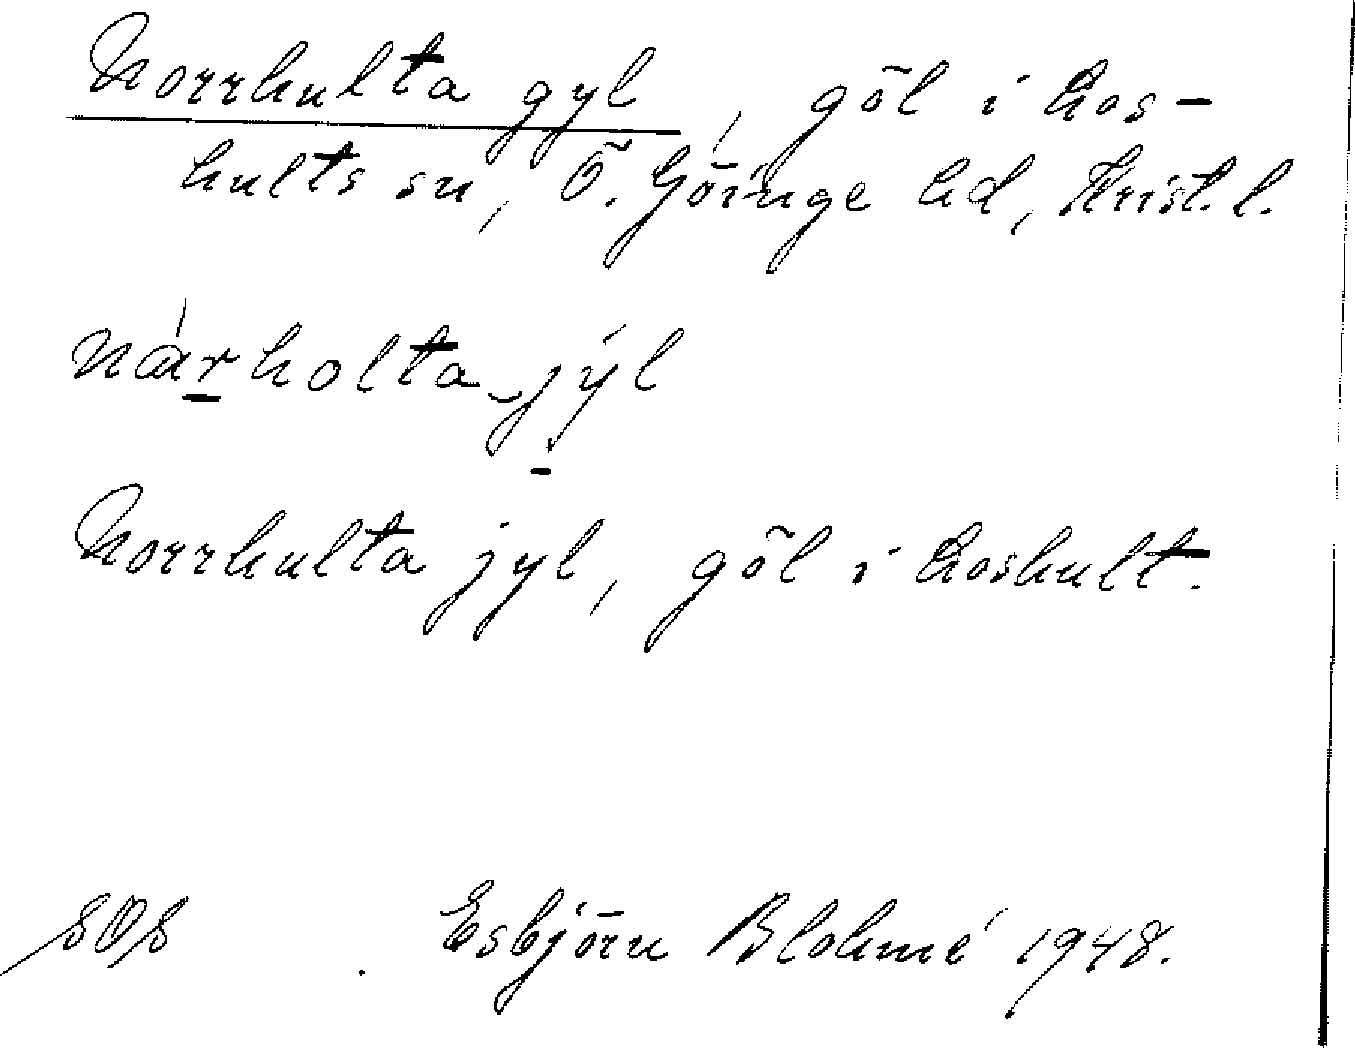 Norrhulta gyl, göl i Hos-
hults sn, Ö. Göinge hd, Krist. l.
nárholta jýl
Norrhulta jyl, göl i Hoshult.
SOS Esbjörn Blohmé 1948.